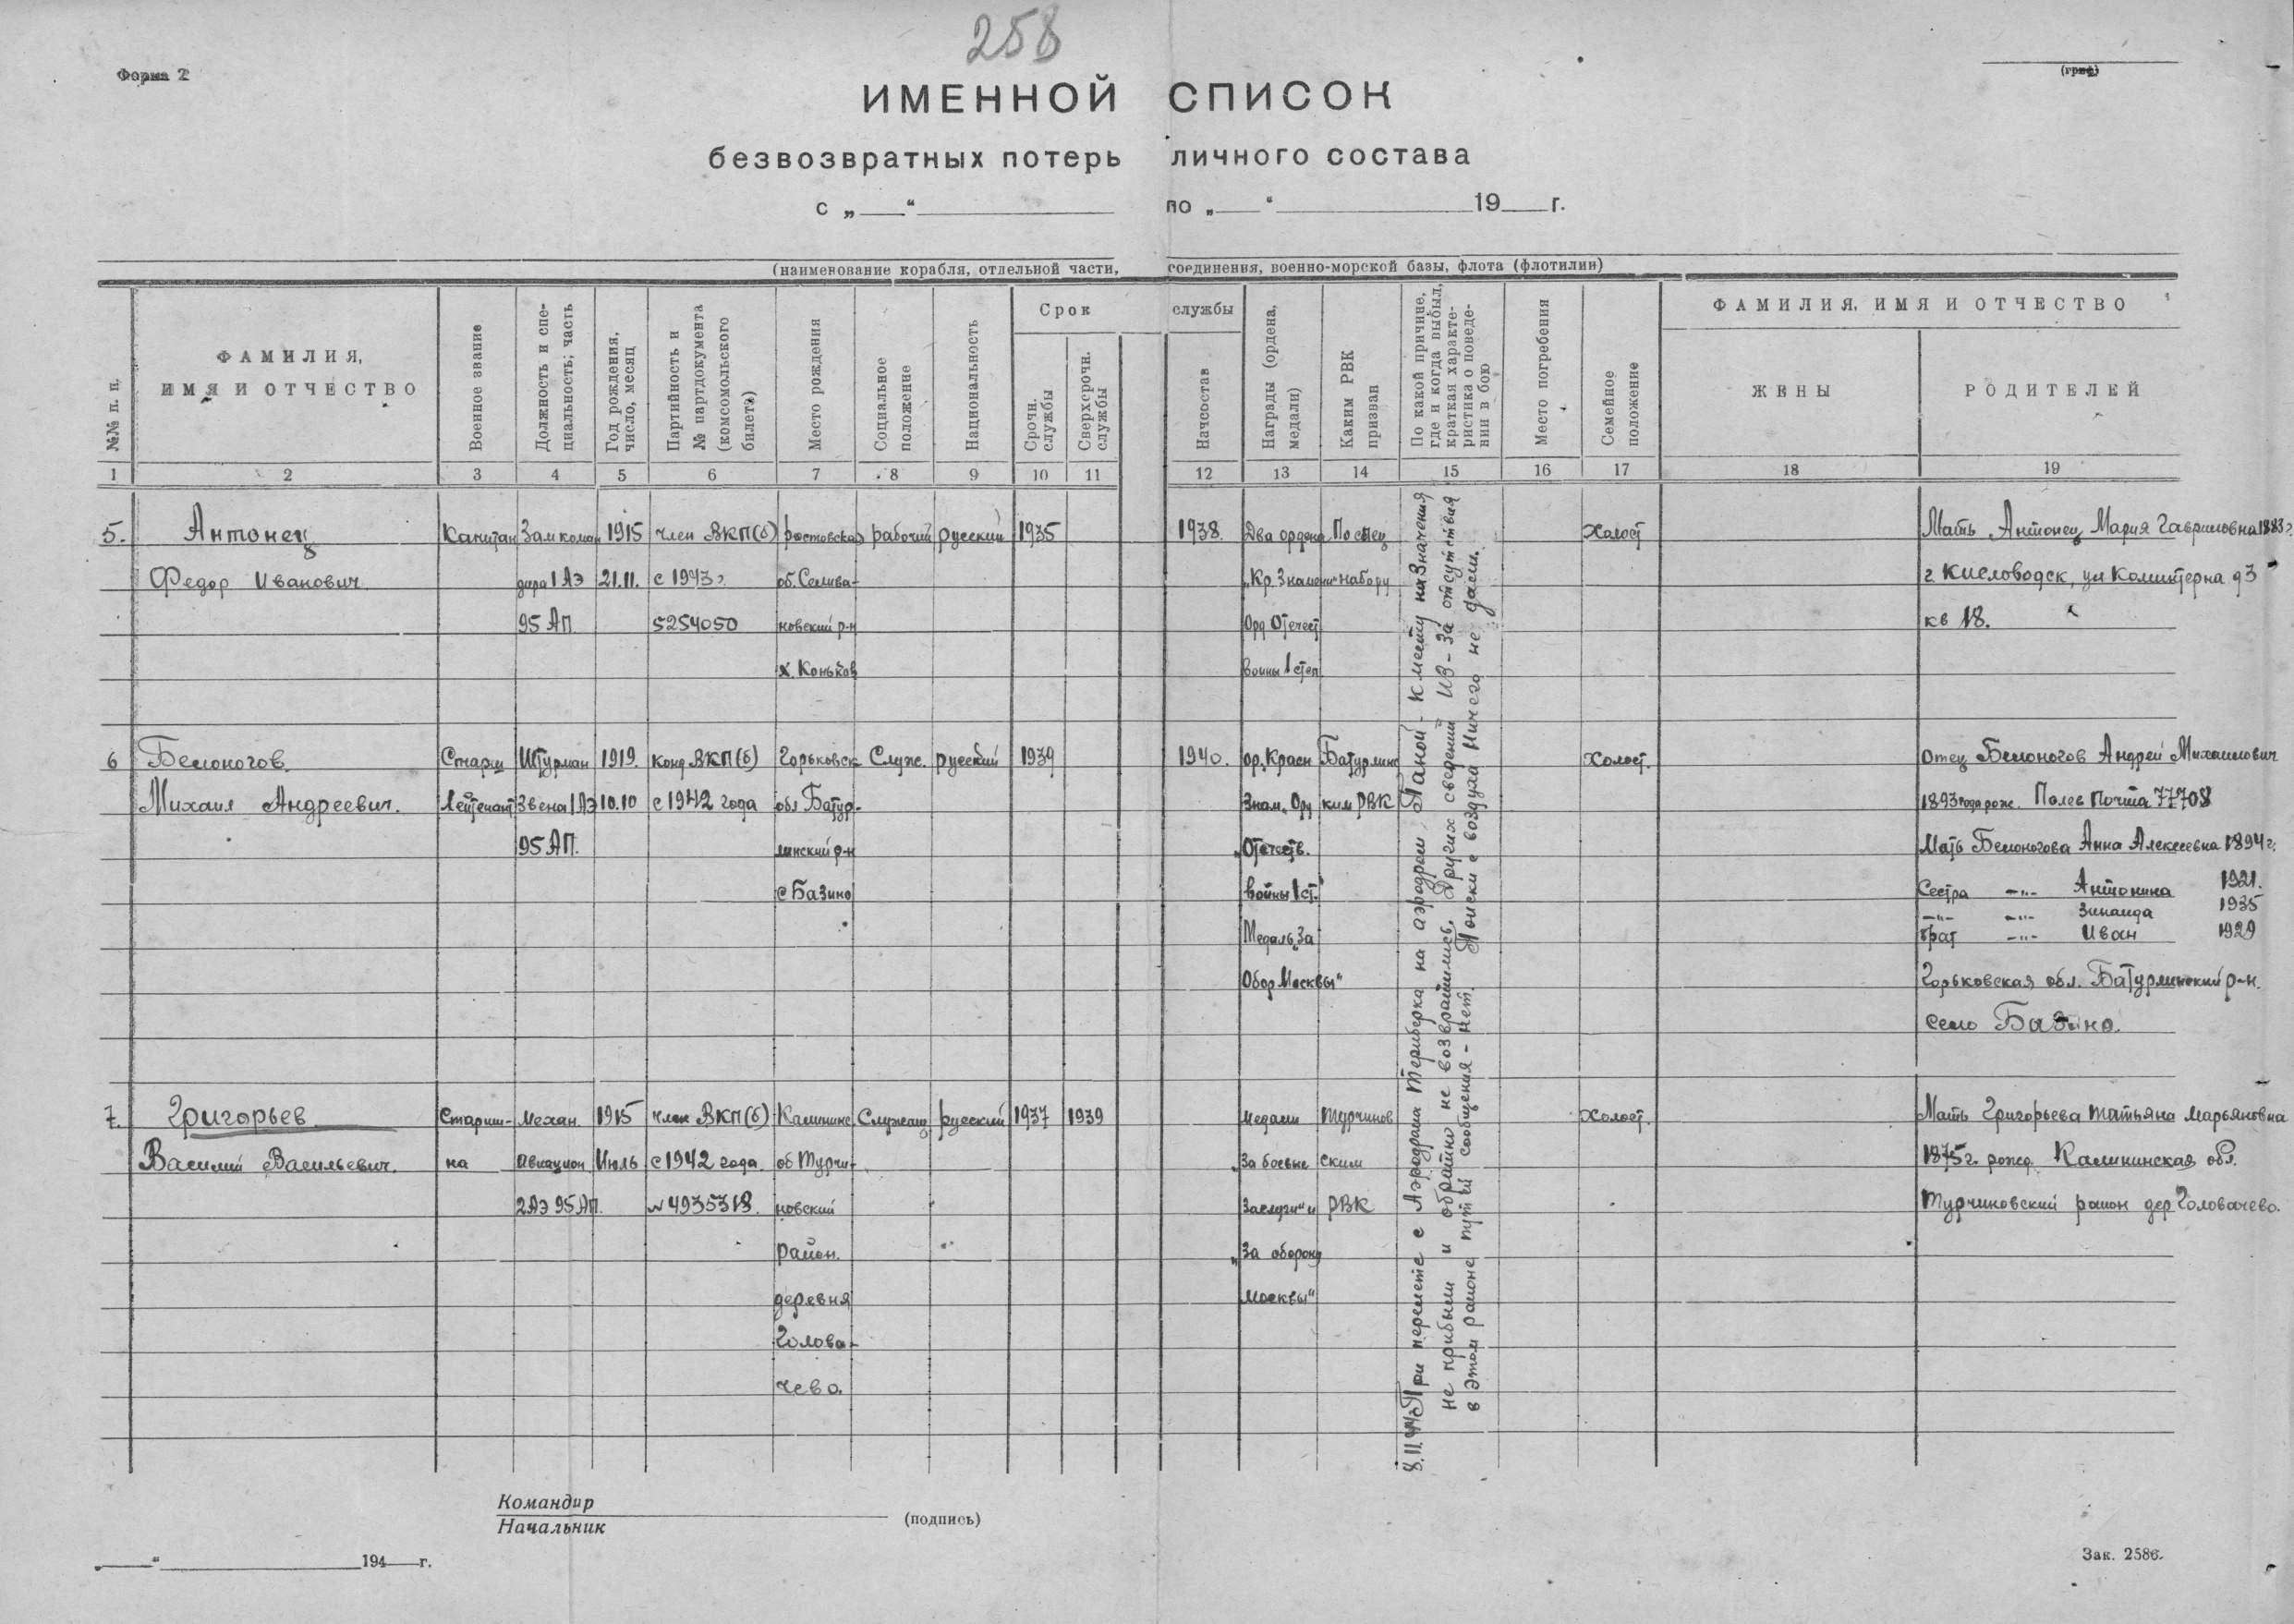 258
Форма 2
(гриф)
ИМЕННОЙ СПИСОК
безвозвратных потерь личного состава
с „ “ по „ “ 19 г.
(наименование корабля, отдельной части, соединения, военно-морской базы, флота (флотилии)
№№ п. п.
ФАМИЛИЯ,
ИМЯ И ОТЧЕСТВО
Военное звание
Должность и спе-
циальность; часть
Год рождения,
число, месяц
Партийность и
№ партдокумента
(комсомольского
билета)
Место рождения
Социальное
положение
Национальность
Срок службы
Срочн.
службы
Сверхсрочн.
службы
Начсостав
Награды (ордена,
медали)
Каким РВК
призван
По какой причине,
где и когда выбыл,
краткая характе-
ристика о поведе-
нии в бою
Место погребения
Семейное
положение
ФАМИЛИЯ, ИМЯ И ОТЧЕСТВО
ЖЕНЫ
РОДИТЕЛЕЙ
1 2 3 4 5 6 7 8 9 10 11 12 13 14 15 16 17 18 19
5. Антонец Капитан Зам коман 1915 член ВКП(б) ростовская рабочий русский 1935 1938. Два ордена По спец Холост Мать Антонец Мария Гавриловна 1883 г.
Федор Иванович дира 1 АЭ 21.11. с 1943 г. об. Селива- „Кр. Знамени“ набору г. Кисловодск, ул Коминтерна д 3
95 АП 5254050 новский р-н Орд Отечест кв 18.
х. Коньков войны 1 степ
6 Белоногов Старш Штурман 1919. Канд ВКП(б) Горьковск Служ. русский 1939 1940. Ор. Красн Батурлинс Холост. Отец Белоногов Андрей Михаилович
Михаил Андреевич. Лейтенант Звена 1 АЭ 10.10 с 1942 года обл Батур- Знам. Орд ким РВК 1893 года рож. Полев Почта 77708
95 АП. линский р-н „Отечеств. Мать Белоногова Анна Алексеевна 1894 г.
с Базино войны 1 ст.“ Сестра —„— Антонина 1921.
—„— —„— Зинаида 1935
Медаль „За брат —„— Иван 1929
Обор Москвы“ Горьковская обл. Батурлинский р-н.
село Базино.
7. Григорьев Старши- Механ. 1915 Член ВКП(б) Калининс Служащ русский 1937 1939 Медали Турчинов Холост. Мать Григорьева Татьяна Марьяновна
Василий Васильевич. на Авиацион Июль с 1942 года об Турчи- „За боевые ским 1875 г. рожд. Калининская обл.
2 АЭ 95 АП. № 4935318. новский Заслуги“ и РВК Турчиновский район дер. Головачево.
район. „За оборону
деревня Москвы“
Голова-
чево.
8.11.44 г. При перелете с Аэродрома Териберка на аэродром Ваной - к месту назначения
не прибыли и обратно не возвратились. Других сведений из-за отсутствия
в этом районе путей сообщения - нет. Поиски с воздуха ничего не дали.
Командир
Начальник
(подпись)
„ “ 194 г.
Зак. 2586.